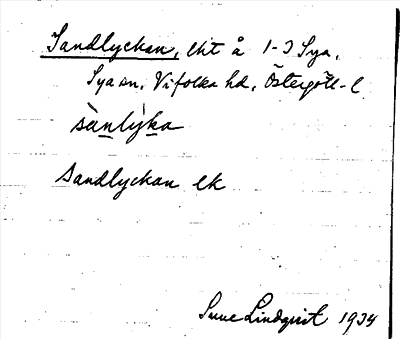 Sandlyckan, lht å 1-3 Sya,
Sya sn, Vifolka hd, Östergötl-l.
sànlỳka
Sandlyckan ek
Sune Lindqvist 1934